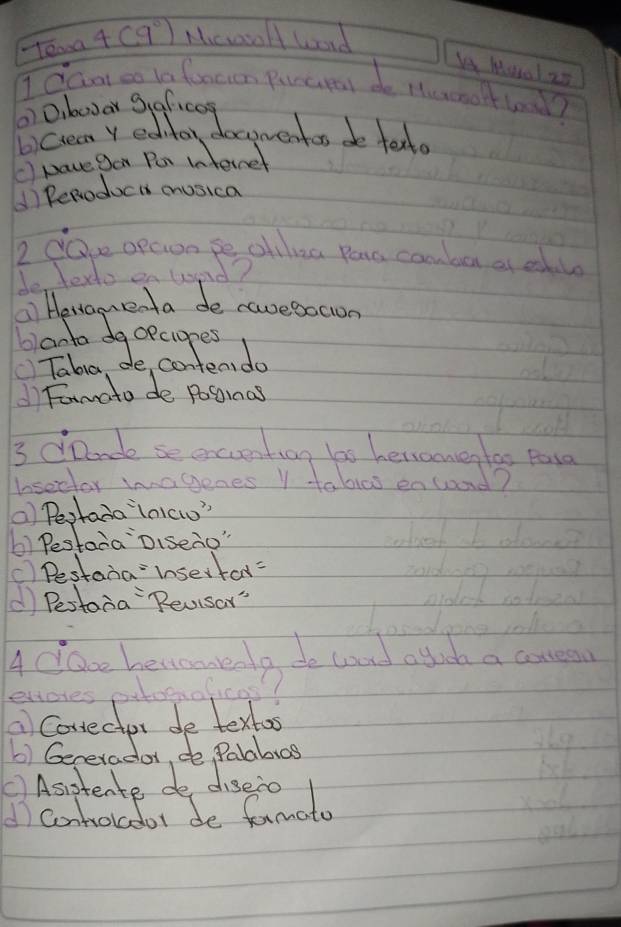 Tema 4 (9°) Microsoft Word
14 Marzo/25
1 ¿Cual es la funcion Principal de Microsoft Word?
a) Dibujar graficos
b) Crear y editar documentos de texto
c) navegar Por internet
d) Reproducir musica
2 ¿Que opcion se utiliza Para cambiar el estilo
de texto en word?
a) Herramienta de navegacion
b) de opciones
c) Tabla de contenido
d) Formato de Paginas
3 ¿Donde se encuentran las herramientas Para
insectar imagenes y tablas en word?
a) Pestaña "inicio"
b) Pestaña "Diseño"
c) Pestaña "insertar"
d) Pestaña "Revisar"
4 ¿Que herramienta de word ayuda a corregir
errores ortograficos?
a) Corrector de textos
b) Generador de Palabras
c) Asistente de diseño
d) Controlador de formato